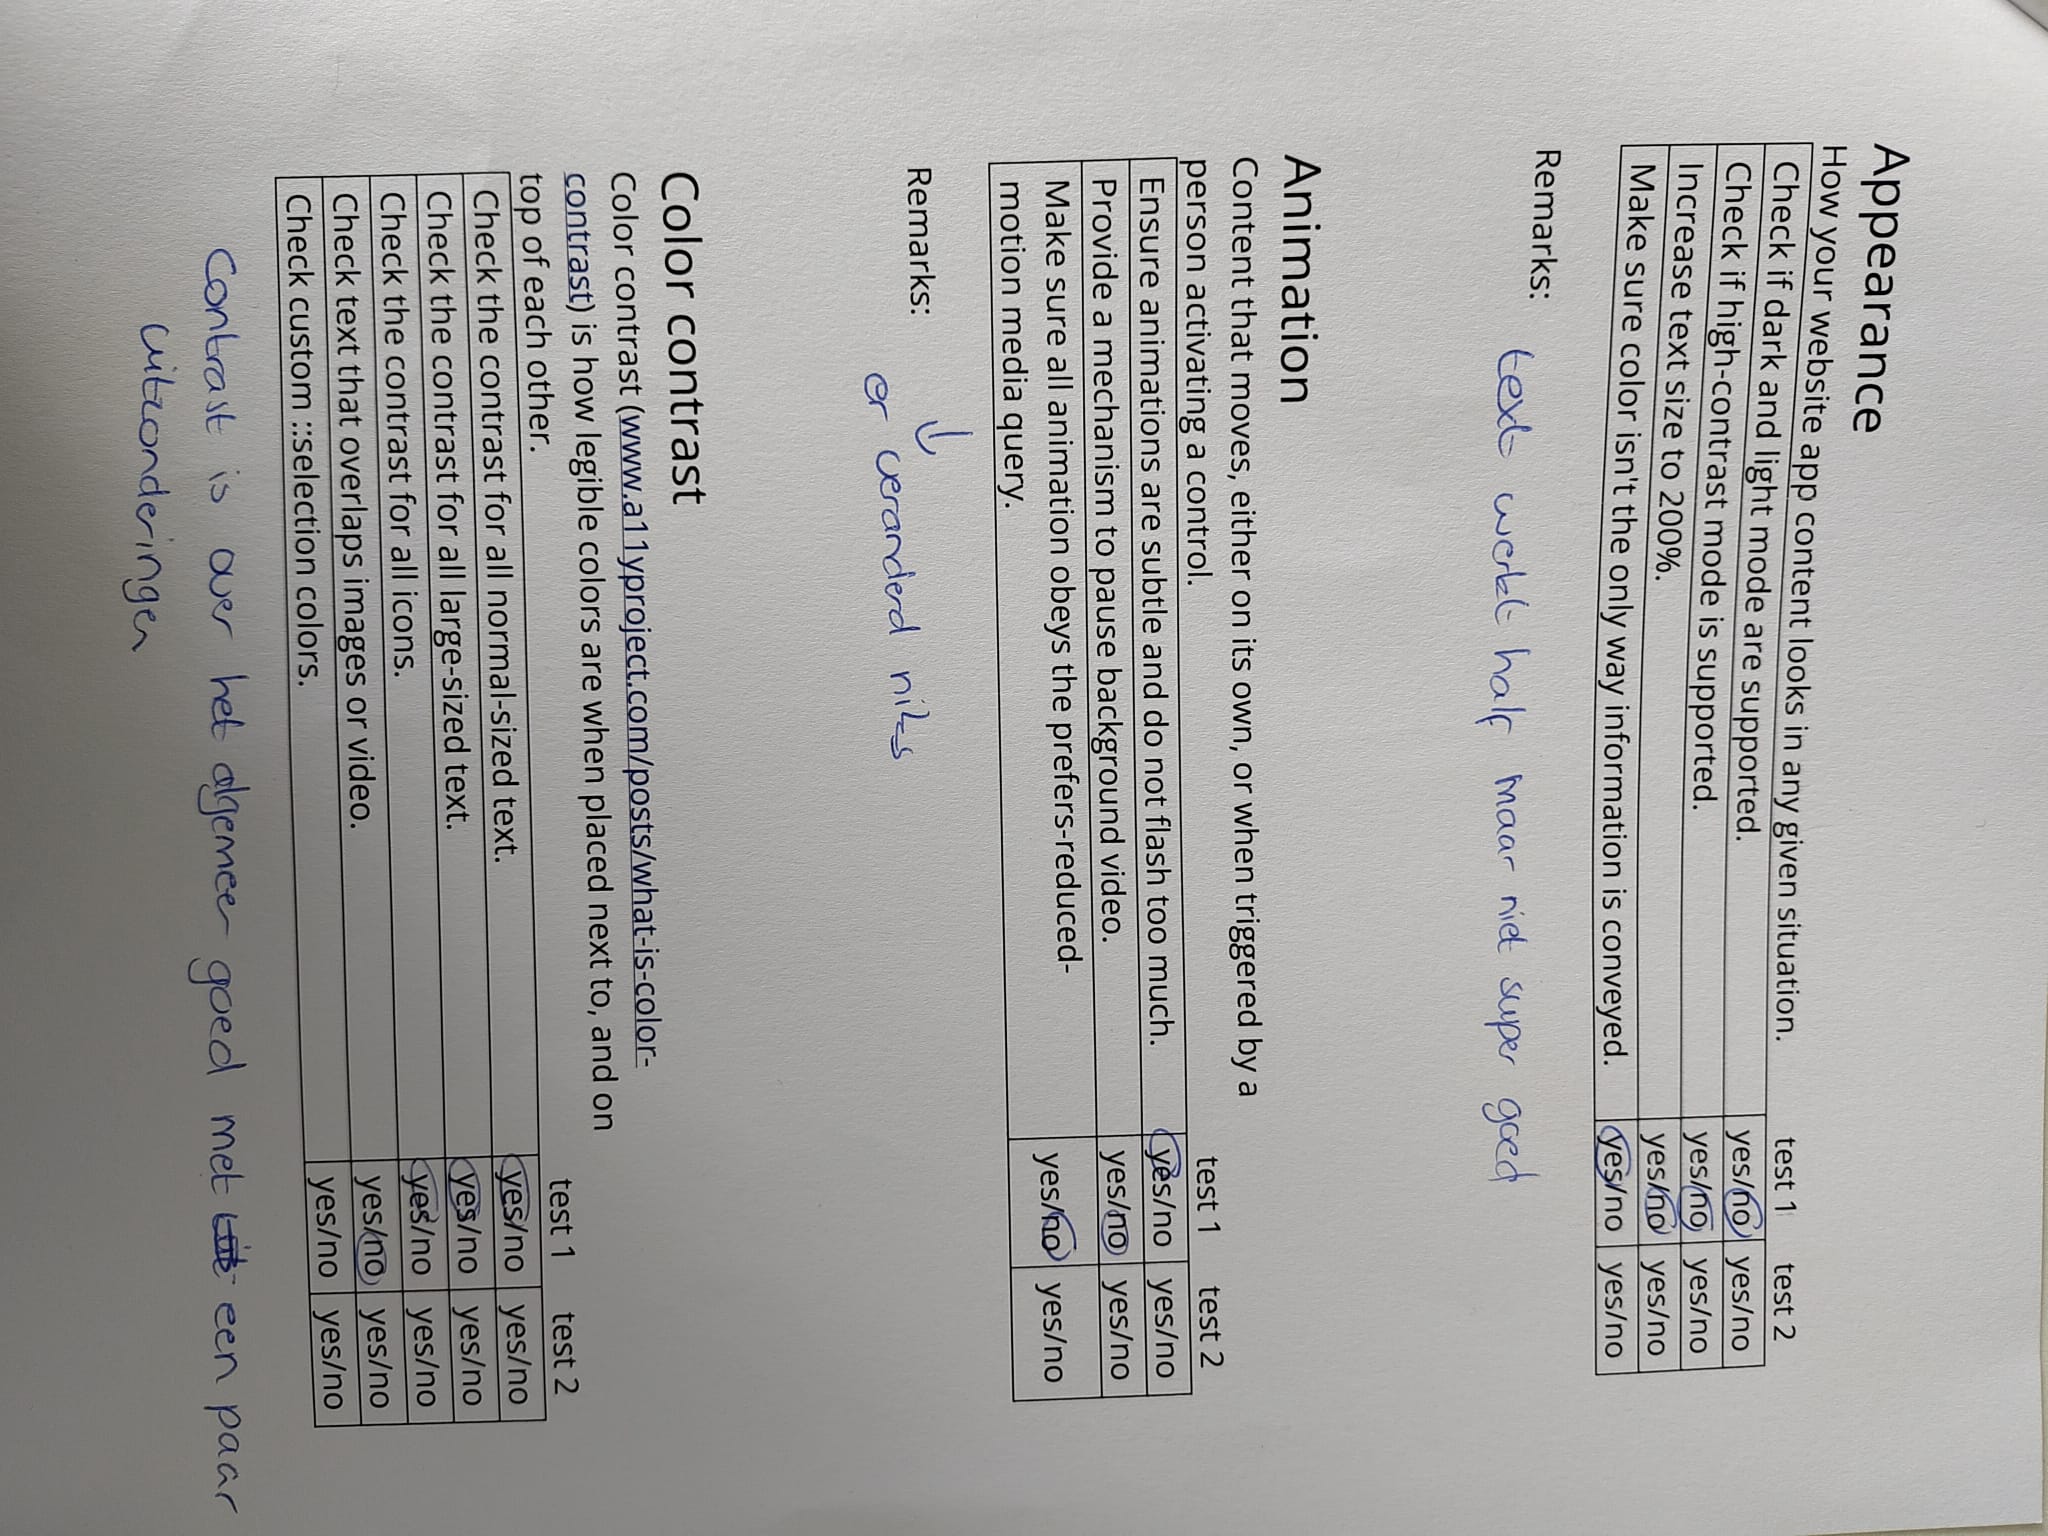 Appearance
How your website app content looks in any given situation.
test 1 test 2
Check if dark and light mode are supported. yes/no yes/no
Check if high-contrast mode is supported. yes/no yes/no
Increase text size to 200%. yes/no yes/no
Make sure color isn't the only way information is conveyed. yes/no yes/no
Remarks:
text werkt half maar niet super goed
Animation
Content that moves, either on its own, or when triggered by a
person activating a control.
test 1 test 2
Ensure animations are subtle and do not flash too much. yes/no yes/no
Provide a mechanism to pause background video. yes/no yes/no
Make sure all animation obeys the prefers-reduced-
motion media query. yes/no yes/no
Remarks:
↓
er veranderd niks
Color contrast
Color contrast (www.a11yproject.com/posts/what-is-color-
contrast) is how legible colors are when placed next to, and on
top of each other.
test 1 test 2
Check the contrast for all normal-sized text. yes/no yes/no
Check the contrast for all large-sized text. yes/no yes/no
Check the contrast for all icons. yes/no yes/no
Check text that overlaps images or video. yes/no yes/no
Check custom ::selection colors. yes/no yes/no
Contrast is over het algemeen goed met een paar
uitzonderingen